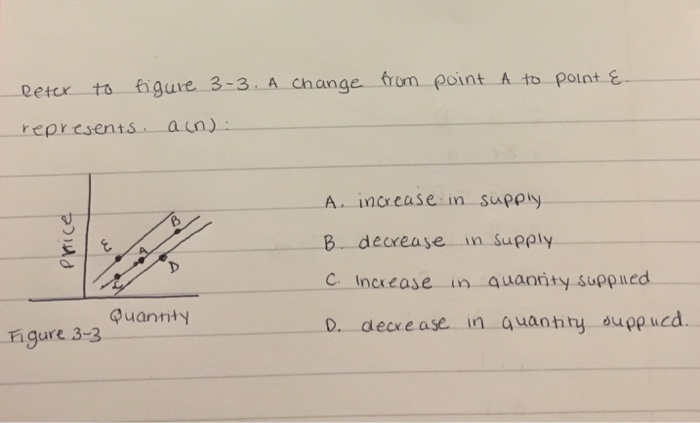 Refer to figure 3-3. A change from point A to point E.
represents. a(n):
A. increase in supply
B. decrease in supply
C. Increase in quantity supplied
D. decrease in quantity supplied.
Price
E
B
A
D
Quantity
Figure 3-3